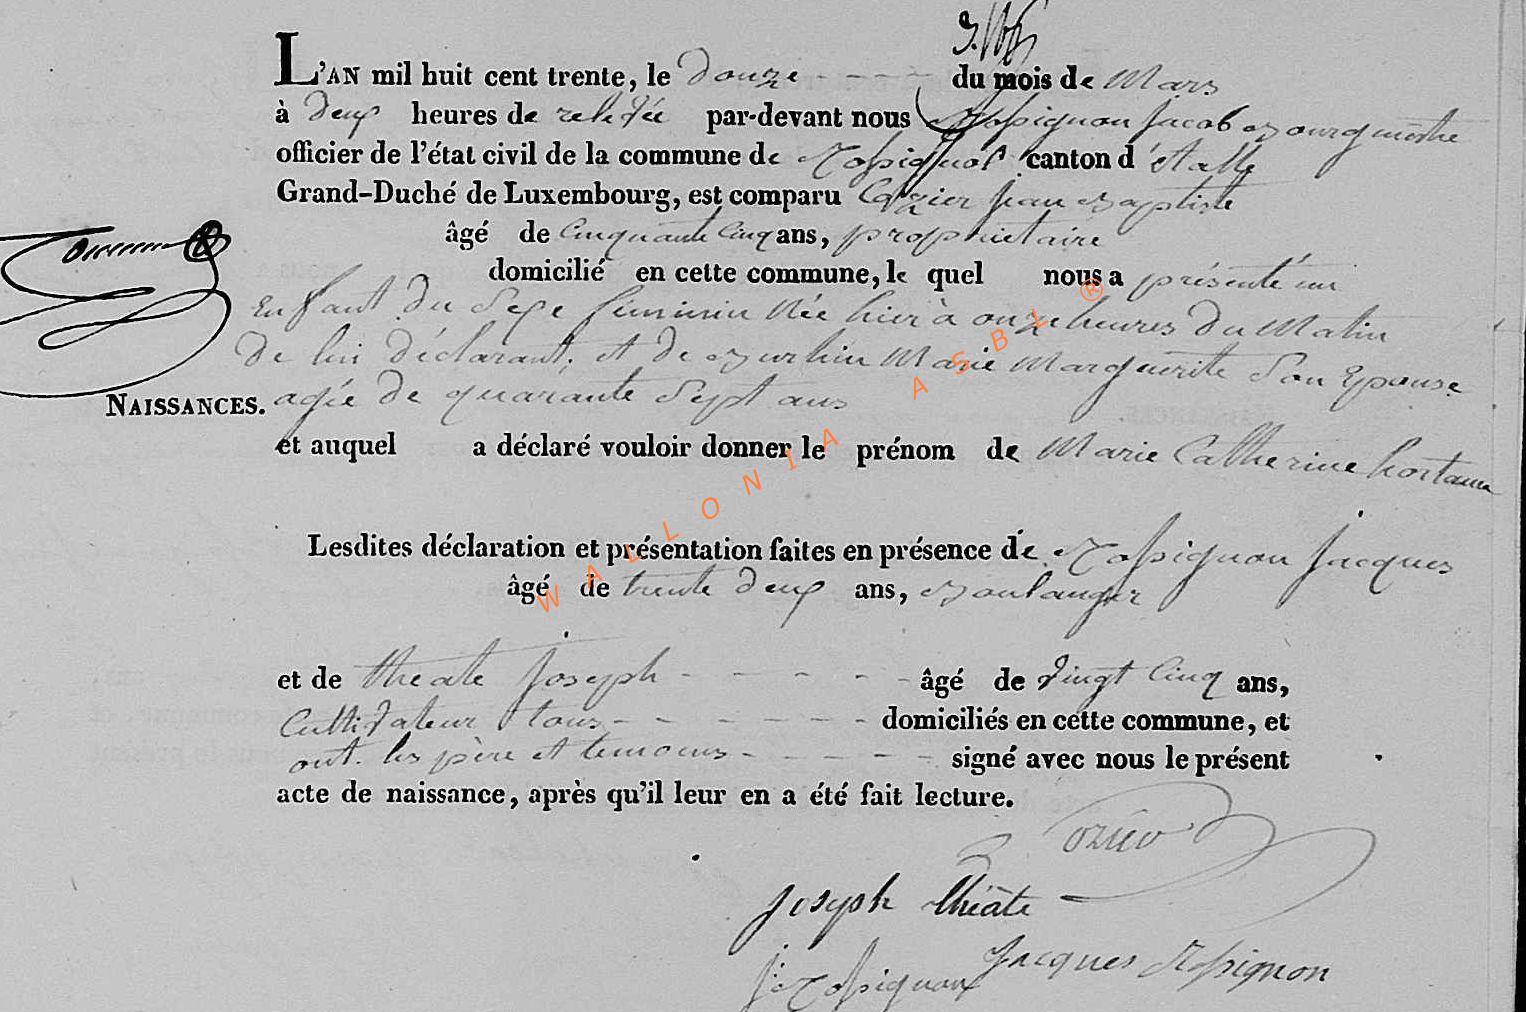 L'AN mil huit cent trente, le douze du mois de Mars
à deux heures de relevée par-devant nous Rossignon Jacob Bourguèstre
officier de l'état civil de la commune de Rossignol canton d'étalle
Grand-Duché de Luxembourg, est comparu Cozier Jean Baptiste
âgé de Cinquante Cinq ans, propriétaire
domicilié en cette commune, le quel nous a présenté un
Enfant du Sexe féminin Née hier à onze heures du Matin
de lui déclarant, et de Marie Marguerite Son Epouse
NAISSANCES. agée de quarante Sept ans
et auquel a déclaré vouloir donner le prénom de Marie Catherine
Lesdites déclaration et présentation faites en présence de Rossignon Jacques
âgé de trente deux ans, Boulanger
et de théate Joseph âgé de vingt Cinq ans,
Cultivateur tous domiciliés en cette commune, et
ont les père et temoins signé avec nous le présent
acte de naissance, après qu'il leur en a été fait lecture.
Joseph théate
Jacques Rossignon
J: Rossignon
WALLONIA ASBL ®